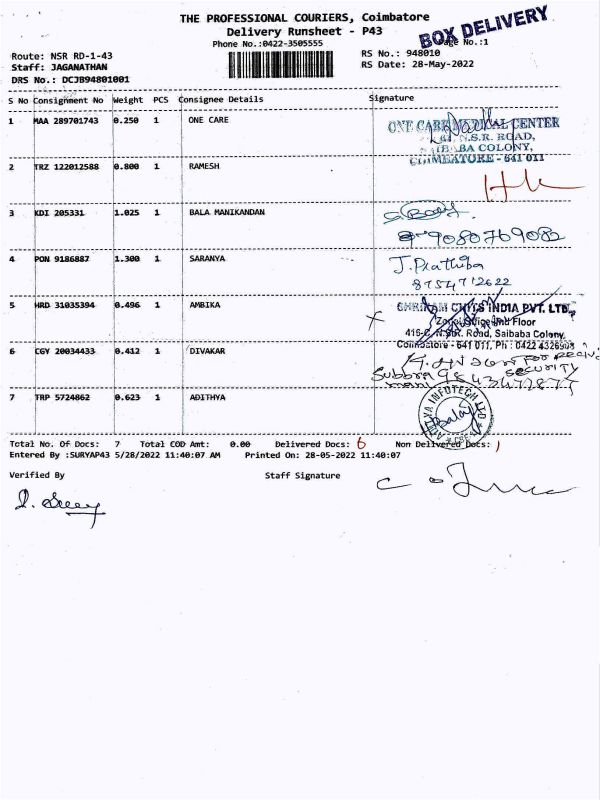 THE PROFESSIONAL COURIERS, Coimbatore
Delivery Runsheet - P43
BOX DELIVERY
Phone No.:0422-3505555
Page No.:1
Route: NSR RD-1-43
RS No.: 948010
Staff: JAGANATHAN
RS Date: 28-May-2022
DRS No.: DCJB94801001
S No Consignment No Weight PCS Consignee Details Signature
1 MAA 289701743 0.250 1 ONE CARE
ONE CARE MEDICAL CENTER
N.S.R. ROAD,
COLONY,
COIMBATORE - 641 011
2 TRZ 122012588 0.800 1 RAMESH
3 KDI 205331 1.025 1 BALA MANIKANDAN
9080769082
4 PON 9186887 1.300 1 SARANYA
J. Prathiba
8754712622
5 HRD 31035394 0.496 1 AMBIKA
SHRIRAM CHITS INDIA PVT. LTD.,
Floor
Road, Saibaba Colony,
Coimbatore - 641 011, Ph : 0422 4326908
6 CGY 20034433 0.412 1 DIVAKAR
SECURITY
7 TRP 5724862 0.623 1 ADITHYA
INFOTECH LTD
Balaj
Total No. Of Docs: 7 Total COD Amt: 0.00 Delivered Docs: 6 Non Delivered Docs: 1
Entered By :SURYAP43 5/28/2022 11:40:07 AM Printed On: 28-05-2022 11:40:07
Verified By Staff Signature